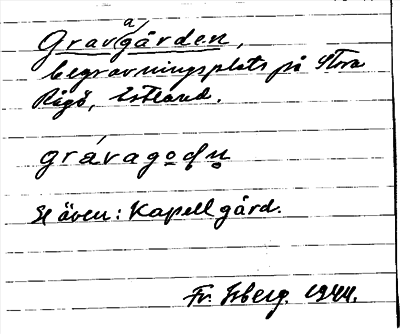 Gravagården,
begravningsplats på Stora
Rågö, Estland.
grávagodn
Se även: Kapellgård.
Fr. Isberg. 1944.